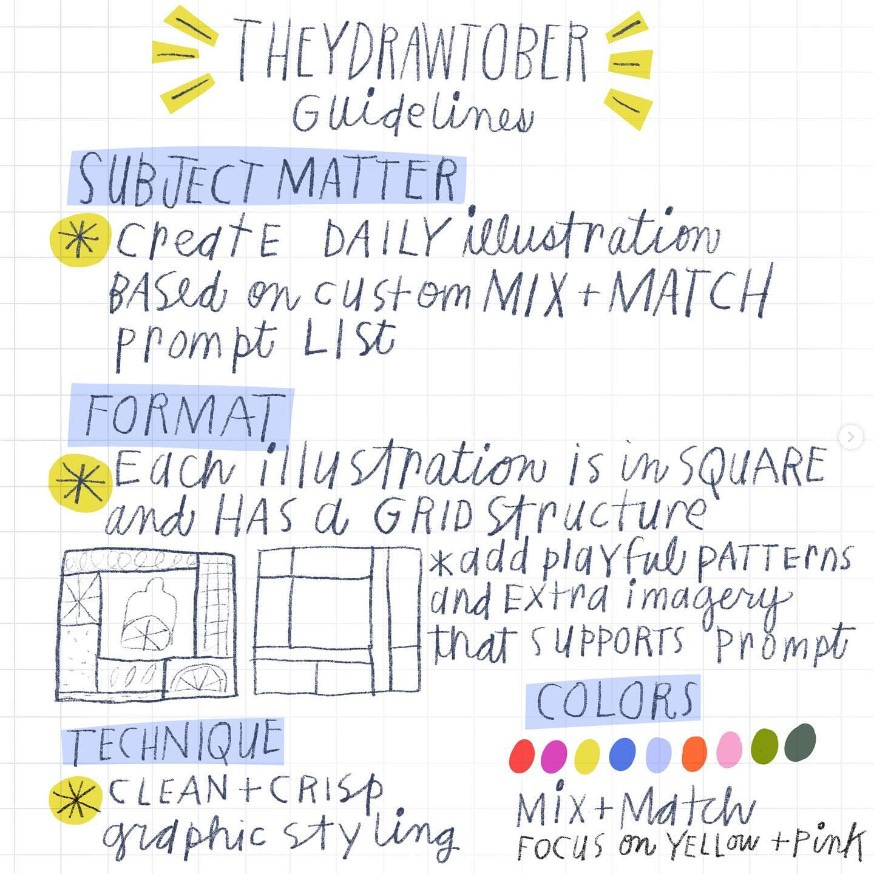 THEYDRAWTOBER
Guidelines
SUBJECT MATTER
* Create DAILY illustration
BASed on custom MIX + MATCH
prompt LIST
FORMAT
* Each illustration is in SQUARE
and HAS a GRID structure
*add playful PATTErns
and Extra imagery
that SUPPORTS prompt
TECHNIQUE
* CLEAN + CRISP
graphic styling
COLORS
Mix + Match
FOCUS on YELLOW + Pink